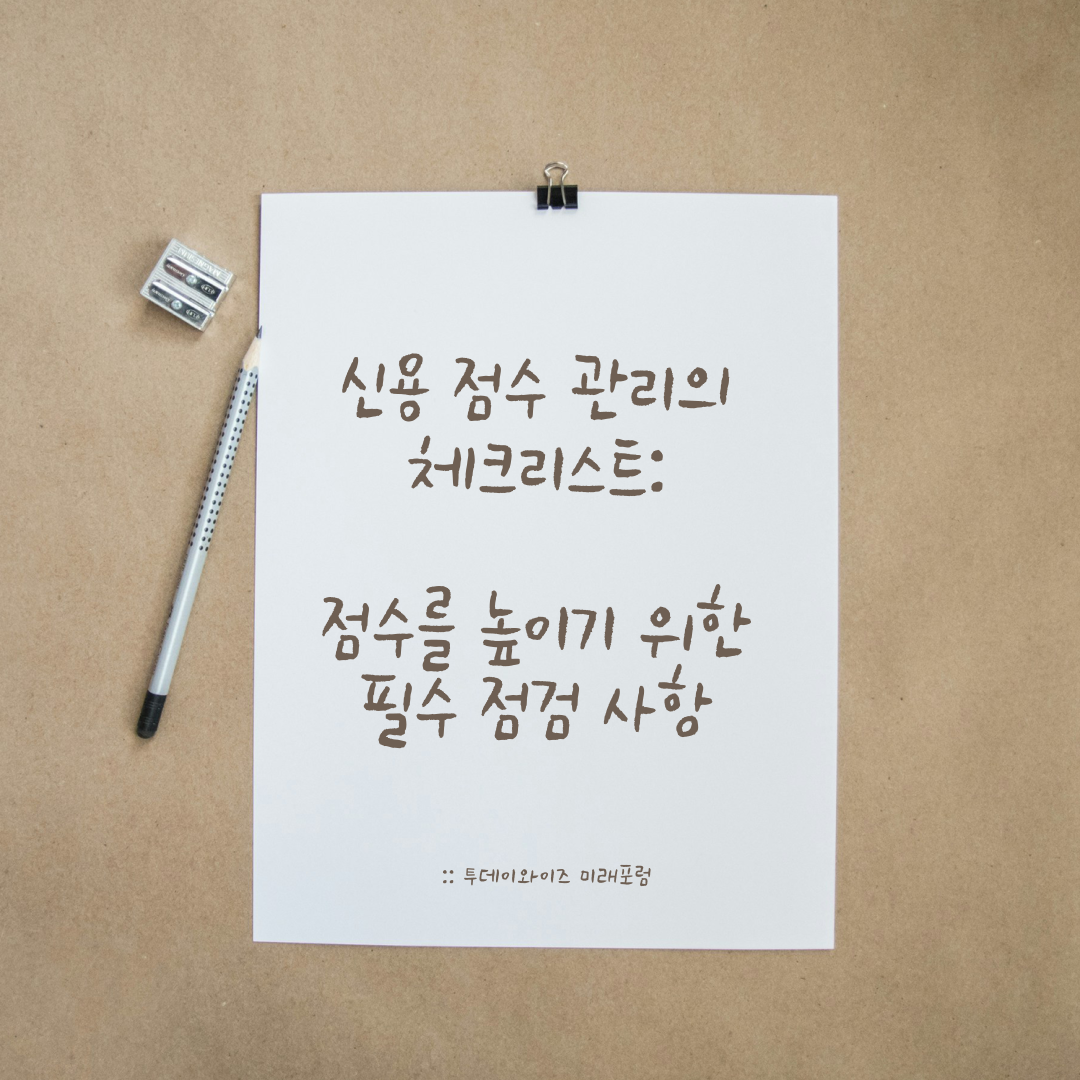 신용 점수 관리의
체크리스트:
점수를 높이기 위한
필수 점검 사항
:: 투데이와이즈 미래포럼